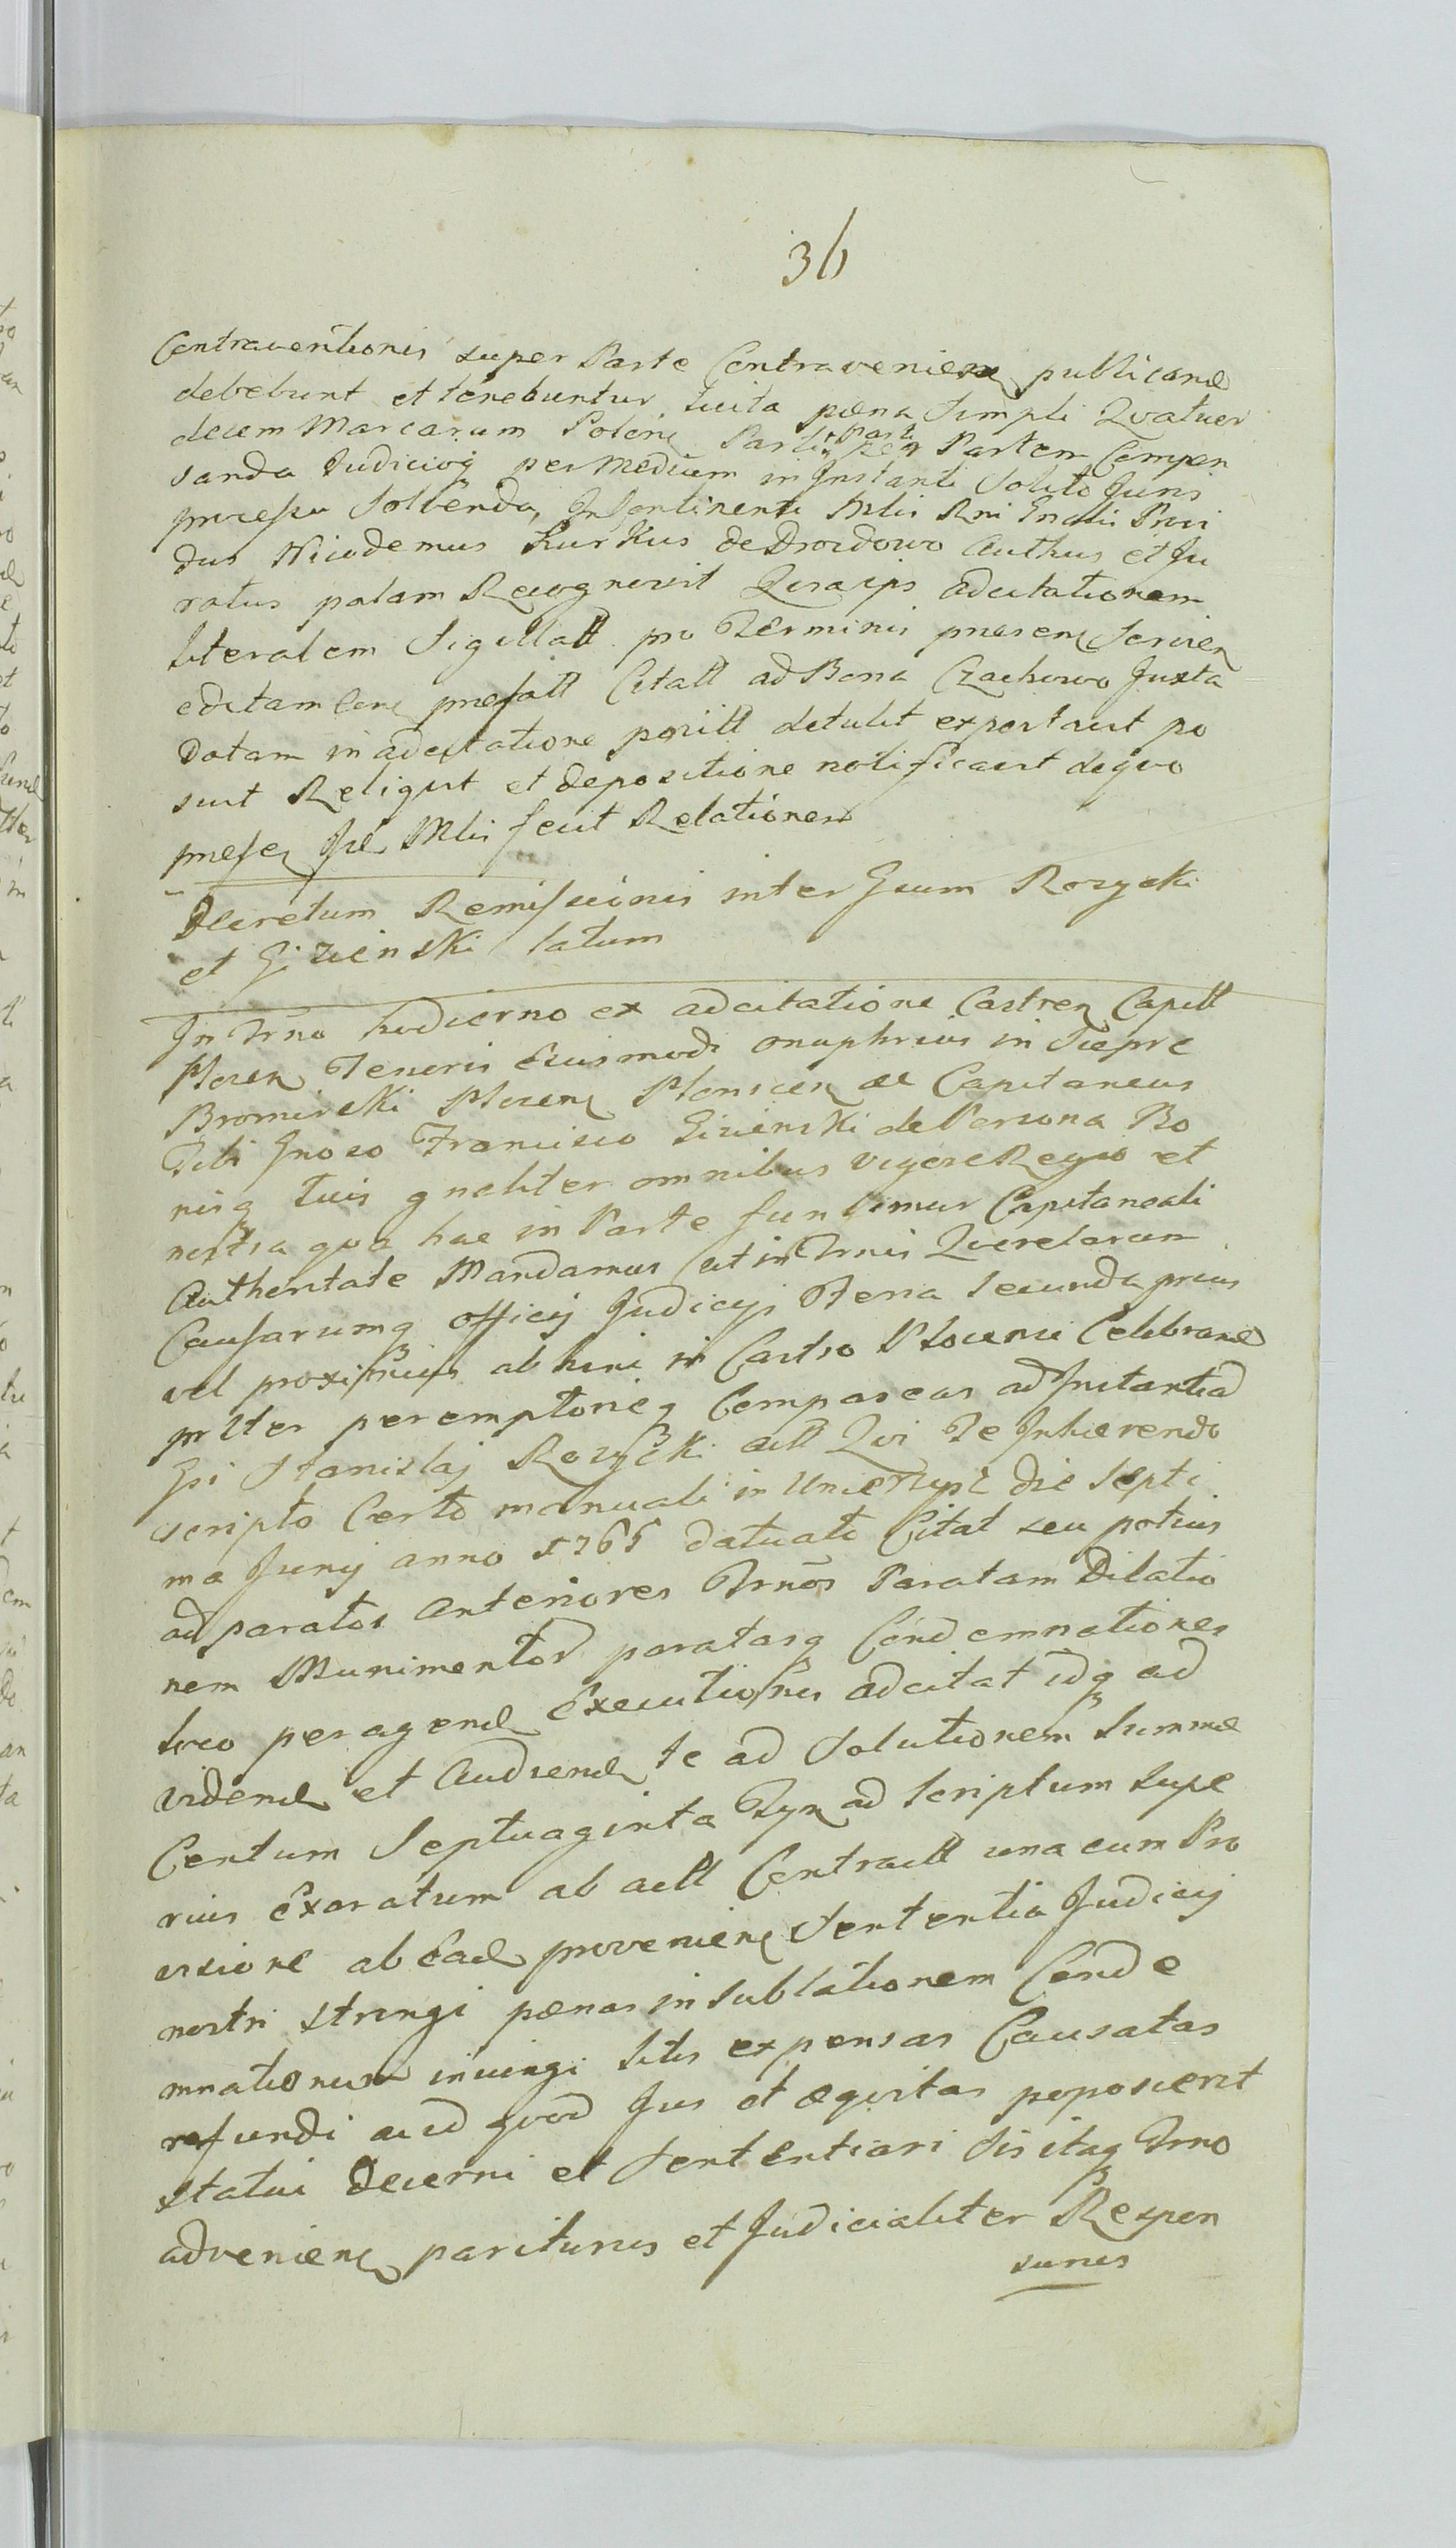 36
Contraventionis super Parte Contravenien publicand
debebunt et tenebuntur sucita pœna simpli Qvatuor
decem Marcarum Polon Parti per Partem Compen
sanda Judiciog per Medium in Instanti Solito Juris
processu Solvenda, In Continenti Mlis Rni Gnalis Provi
dus Nicodemus Kurkus de Drozdowo Authus et Ju
ratus palam Recognovit Quia ips adcitationem
literalem Sigillatt pro Terminis presens Servien
editam Cent prefatt Citatt ad Bona Czachowo Juxta
Datam in adcitatione positt detulit exportavit po
suit Reliqvit et depositione notificavit deqvo
presen Jul Mlis fecit Relationem
Decretum Remissionis inter Gsum Rozycki
et Gizienski latum
In Trno hodierno ex adcitatione Castren Capitt
Plocen Tenoris Ejusmodi Onuphrius in Siepre
Bromirski Plocen Plonscen &c Capitaneus
Tibi Gnoso Francisco Gizienski de Persona Bo
nisq tuis gnaliter omnibus vigore Regio et
nostra qva hac in Parte fungimur Capitaneali
Authoritate Mandamus ut in Trnis Qverelarum
Causarumq officij Judicijs Feria Secunda prius
vel proximius ab hinc in Castro Plocensi Celebrand
prlter peremptorieq Compareas ad Instantiad
Gsi Stanislaj Rozycki actt Qvi Te Inhærendo
scripto Certo manuali in Unierzysz die Septi
ma Junij anno 1765 datuato Citat seu potius
ad paratos anteriores Trnos Paratam Dilatio
nem Munimentor paratasq Condemnationes
loco peragend Executionis adcitat idq ad
vidend et Audiend te ad Solutionem Summæ
Centum Septuaginta Tyn ad Scriptum Supe
rius Exaratum ab actt Contractt una cum Pro
visione ab Ead provenien Sententia Judicij
nostri stringi pœnas in Sublationem Conde
mnationum incingi litis expensas Causatas
refundi aud qvod Jus et æqvitas poposcerit
statui Decerni et Sententiari Sis itaq Trno
advenien pariturus et Judicialiter Respon
surus